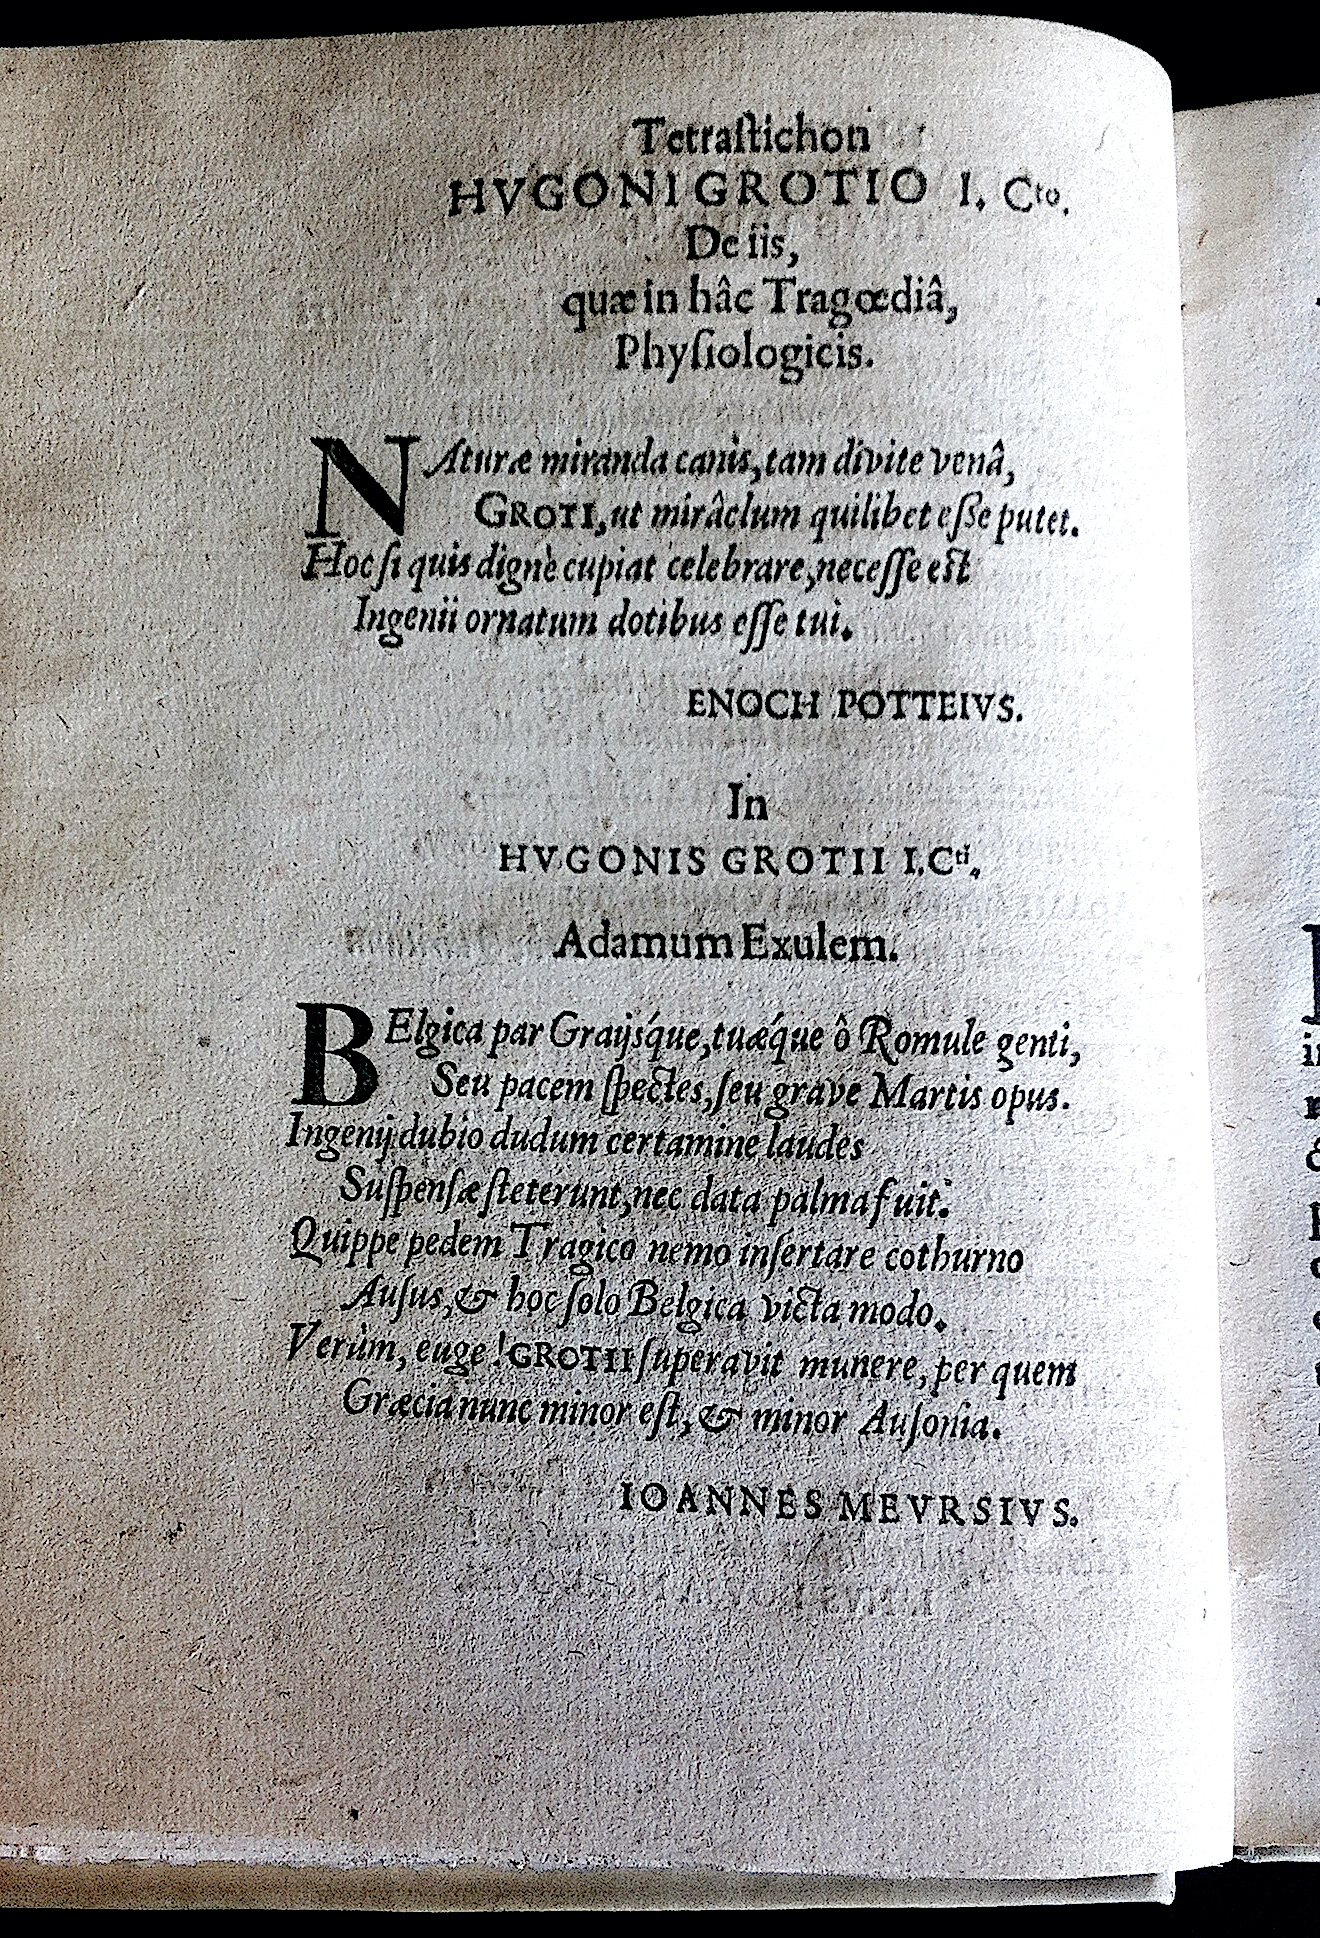 Tetraſtichon
HVGONI GROTIO I. Cto.
De iis,
quæ in hâc Tragœdiâ,
Phyſiologicis.
NAturæ miranda canis, tam divite venâ,
GROTI, ut mirâclum quilibet eſſe putet.
Hoc ſi quis dignè cupiat celebrare, neceſſe est
Ingenii ornatum dotibus eſſe tui.
ENOCH POTTEIVS.
In
HVGONIS GROTII I.Cti.
Adamum Exulem.
BElgica par Graijsque, tuæque ô Romule genti,
Seu pacem ſpectes, ſeu grave Martis opus.
Ingenij dubio dudum certamine laudes
Suſpenſæ ſteterunt, nec data palma fuit.
Quippe pedem Tragico nemo inſertare cothurno
Auſus, & hoc ſolo Belgica victa modo.
Verùm, euge! GROTII ſuperavit munere, per quem
Græcia nunc minor eſt, & minor Auſonia.
IOANNES MEVRSIVS.